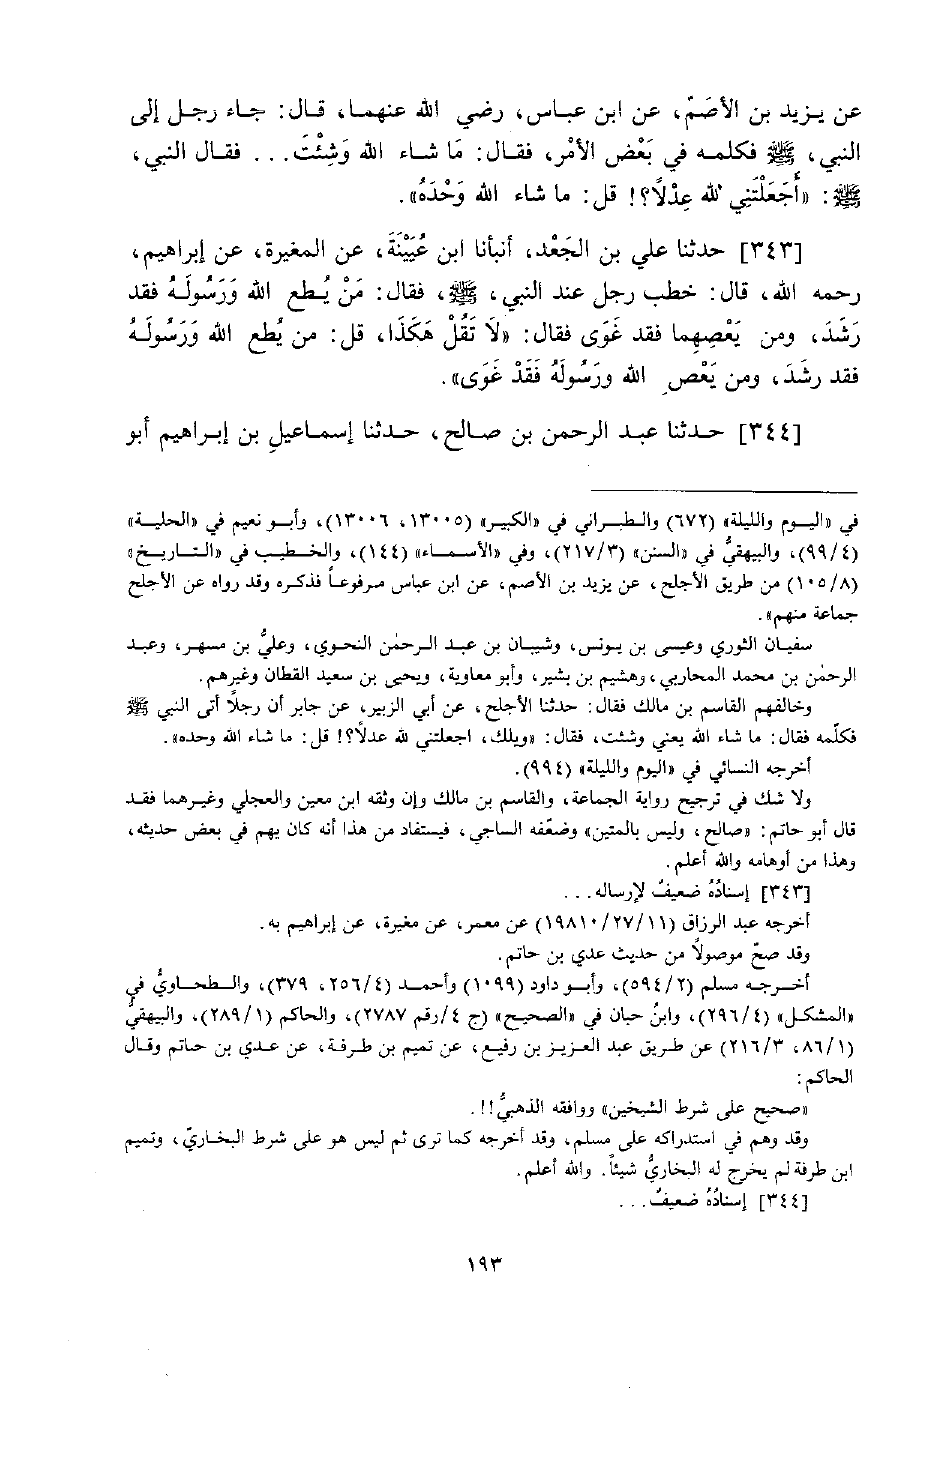 عن يـزيـد بن الأصَمّ، عن ابن عبـاس، رضي الله عنهمـا، قـال: جـاء رجـل إلى
النبي، ﷺ فكلمـه في بَعْض الأمْر، فقـال: مَا شـاء الله وَشِئْتَ... فقـال النبي،
ﷺ: «أَجَعَلْتَنِي لله عِدْلاً؟! قل: ما شاء الله وَحْدَهُ».
[٣٤٣] حدثنا علي بن الجَعْد، أنبأنا ابن عُيَيْنَةَ، عن المغيرة، عن إبراهيم،
رحمه الله، قال: خطب رجل عند النبي، ﷺ، فقال: مَنْ يُـطع الله وَرَسُولَـهُ فقد
رَشَدَ، ومن يَعْصِهِما فقد غَوَى فقال: «لَا تَقُلْ هَكَذَا، قل: من يُطع الله وَرَسُولَـهُ
فقد رشَدَ، ومن يَعْصِ الله ورَسُولَهُ فَقَدْ غَوَى».
[٣٤٤] حـدثنا عبـد الرحمن بن صـالح، حـدثنا إسمـاعيل بن إبـراهيم أبو
في «اليـوم والليلة» (٦٧٢) والـطبـراني في «الكبيـر» (١٣٠٠٥، ١٣٠٠٦)، وأبـو نعيم في «الحليـة»
(٩٩/٤)، والبيهقيُّ في «السنن» (٢١٧/٣)، وفي «الأسمـاء» (١٤٤)، والخـطيب في «التـاريـخ»
(١٠٥/٨) من طريق الأجلح، عن يزيد بن الأصم، عن ابن عباس مرفوعاً فذكره وقد رواه عن الأجلح
جماعة منهم».
سفيـان الثوري وعيسى بن يـونس، وشيبـان بن عبـد الـرحمٰن النحـوي، وعليُّ بن مسهـر، وعبـد
الرحمٰن بن محمد المحاربي، وهشيم بن بشير، وأبو معاوية، ويحيى بن سعيد القطان وغيرهم.
وخالفهم القاسم بن مالك فقال: حدثنا الأجلح، عن أبي الزبير، عن جابر أن رجلاً أتى النبي ﷺ
فكلّمه فقال: ما شاء الله يعني وشئت، فقال: «ويلك، اجعلتني لله عدلاً؟! قل: ما شاء الله وحده».
أخرجه النسائي في «اليوم والليلة» (٩٩٤).
ولا شك في ترجيح رواية الجماعة، والقاسم بن مالك وإن وثقه ابن معين والعجلي وغيـرهما فقـد
قال أبو حاتم: «صالح، وليس بالمتين» وضعّفه الساجي، فيستفاد من هذا أنه كان يهم في بعض حديثه،
وهذا من أوهامه والله أعلم.
[٣٤٣] إسنادُهُ ضعيفٌ لإرساله...
أخرجه عبد الرزاق (١٩٨١٠/٢٧/١١) عن معمر، عن مغيرة، عن إبراهيم به.
وقد صحّ موصولاً من حديث عدي بن حاتم.
أخـرجـه مسلم (٥٩٤/٢)، وأبـو داود (١٠٩٩) وأحمـد (٢٥٦/٤، ٣٧٩)، والـطحـاويُّ في
«المشكـل» (٢٩٦/٤)، وابنُ حبان في «الصحيح» (ج ٤/رقم ٢٧٨٧)، والحاكم (٢٨٩/١)، والبيهقيُّ
(٨٦/١، ٢١٦/٣) عن طـريق عبد العـزيـز بن رفيع، عن تميم بن طـرفـة، عن عـدي بن حاتم وقـال
الحاكم:
«صحيح على شرط الشيخين» ووافقه الذهبيُّ!!.
وقد وهم في استدراكه على مسلم، وقد أخرجه كما ترى ثم ليس هو على شرط البخاريّ، وتميم
ابن طرفة لم يخرج له البخاريُّ شيئاً. والله أعلم.
[٣٤٤] إسنادُهُ ضعيفٌ...
١٩٣